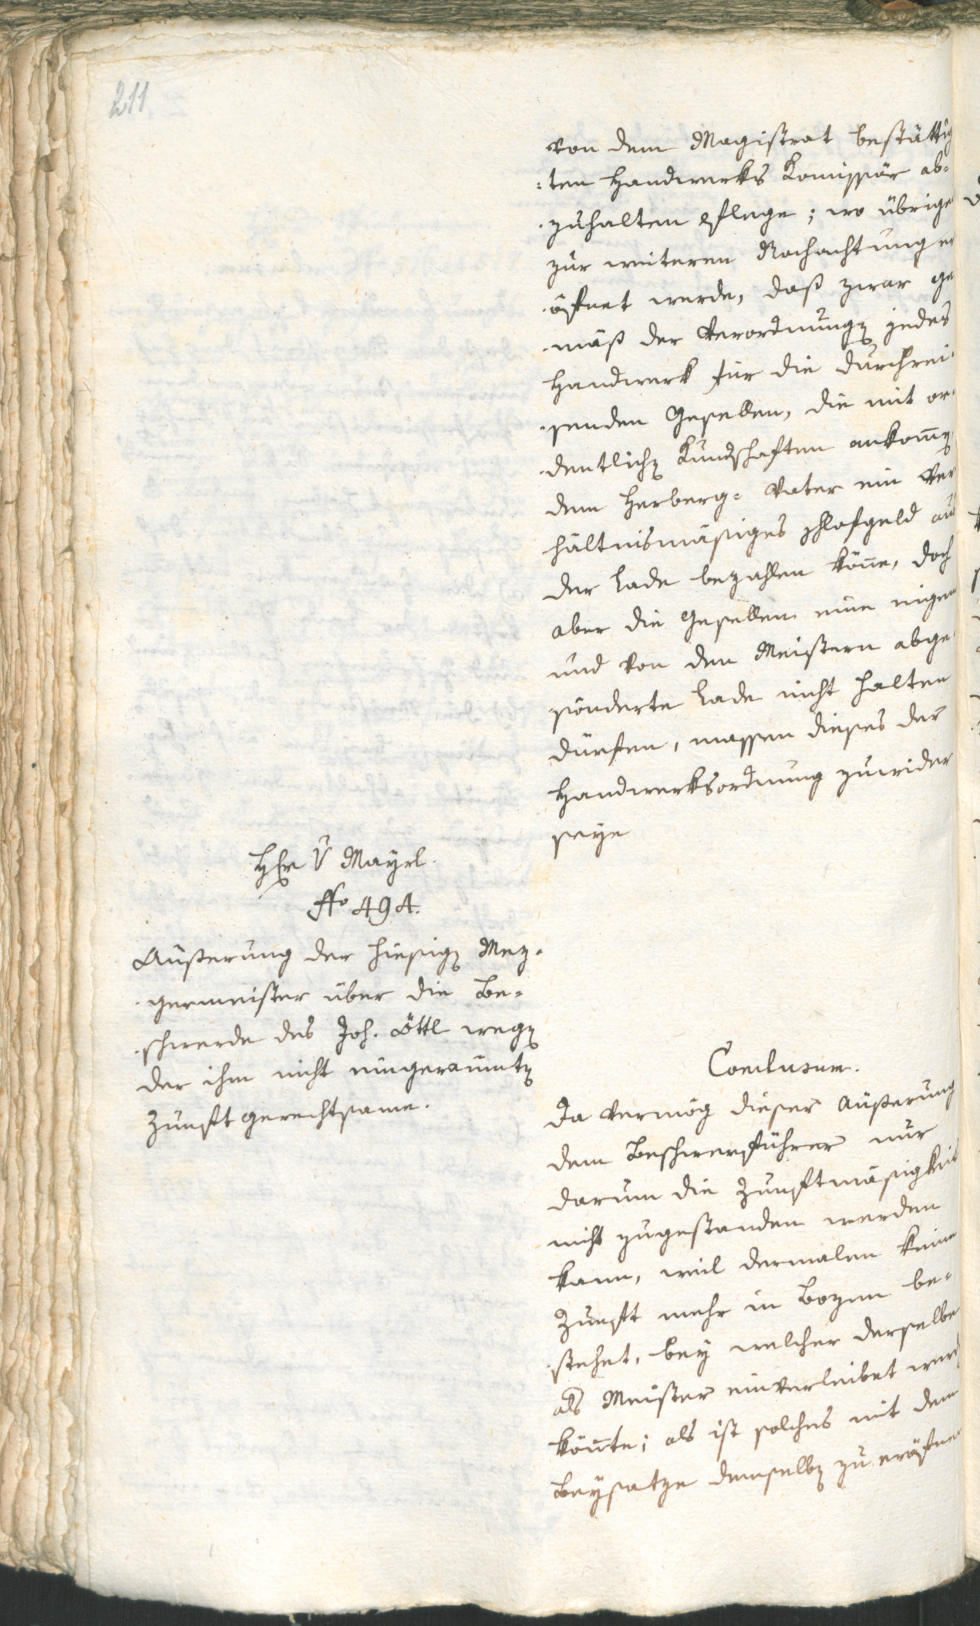 211
von dem Magistrat bestättig
:ten Handwerks Komissär ab-
zuhalten pflege; wo übrige
zur weiteren Nachachtung er
öfnet werde, daß zwar ge
mäß der Verordnung jedes
Handwerk für die durchrei-
senden Gesellen, die mit or-
dentlich Kundschaften ankom̄
dem Herberg-Vater ein Ver
hältnismäßiges Schlafgeld aus
der Lade bezahlen kön̄e, doch
aber die Gesellen eine eigene
und von den Meistern abge-
sönderte Lade nicht halten
dürfen, massen dieses der
Handwerksordnung zuwider
seye
Hr V Mayrl.
No 494.
Äußerung der hiesig Mez-
germeister über die Be-
schwerde des Joh. Öttl weg
der ihm nicht eingeraumt
Zunftgerechtsame.
Conclusum.
Da vermög dieser Äußerung
dem Beschwerführer nur
darum die Zunftmäßigkeit
nicht zugestanden werden
kann, weil dermalen keine
Zunft mehr in Bozen be-
stehet, bey welcher derselbe
als Meister einverleibet werd
kön̄te; als ist solches mit dem
Beysatze demselb zu eröfnen